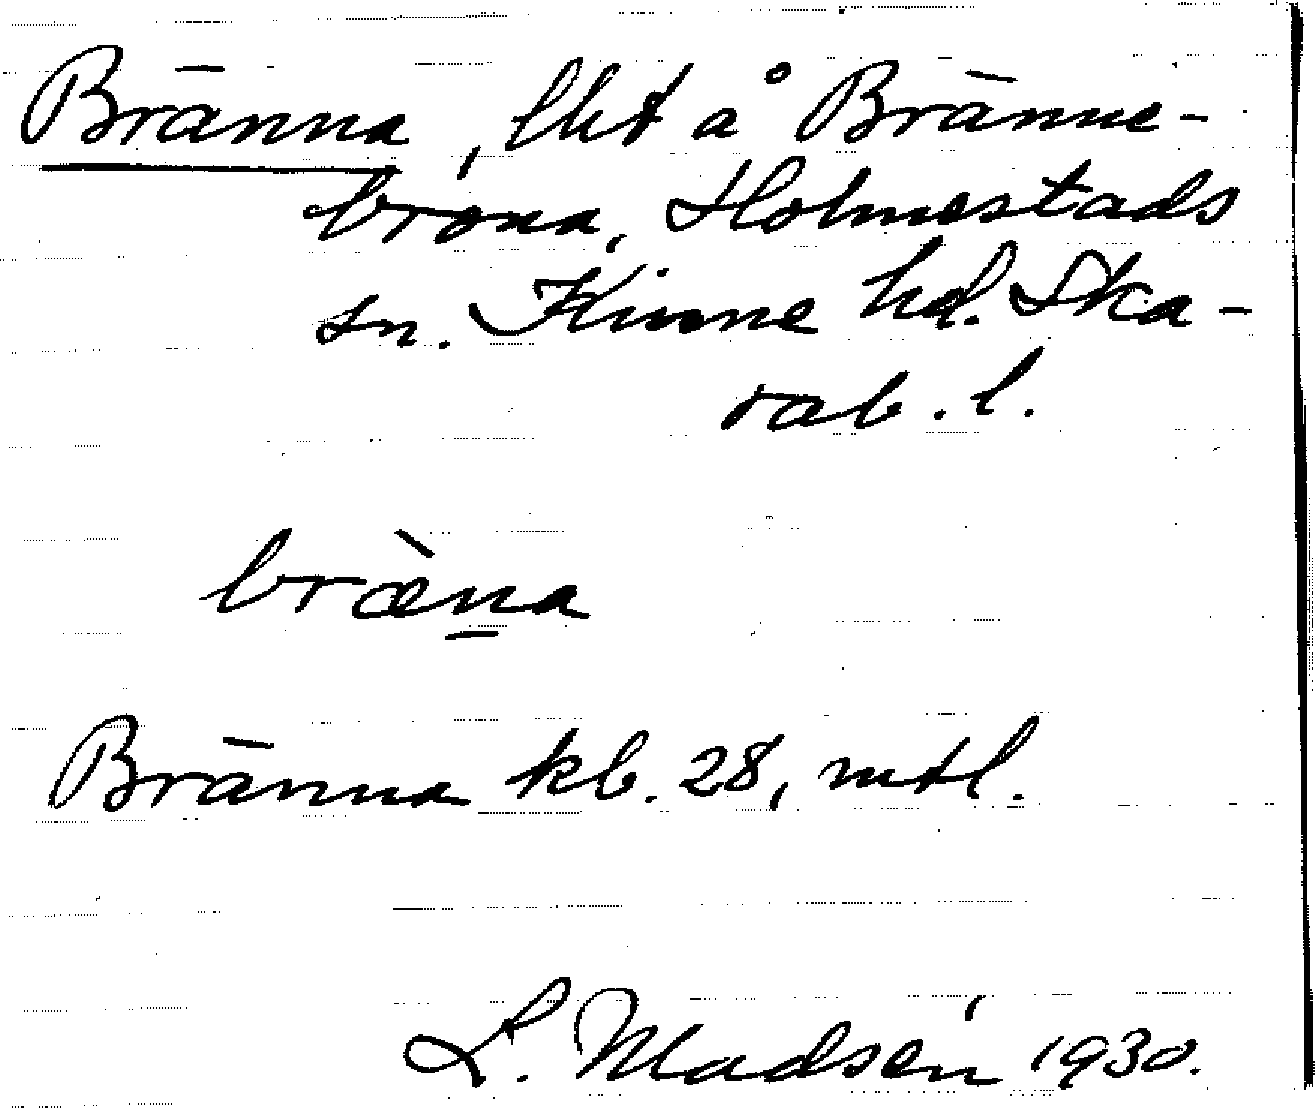 Bränna, lht å Bränne-
brona, Holmestads
sn. Kinne hd. Ska-
rab. l.
bræ̀n̲a
Bränna kb. 28, mtl.
L. Madsén 1930.